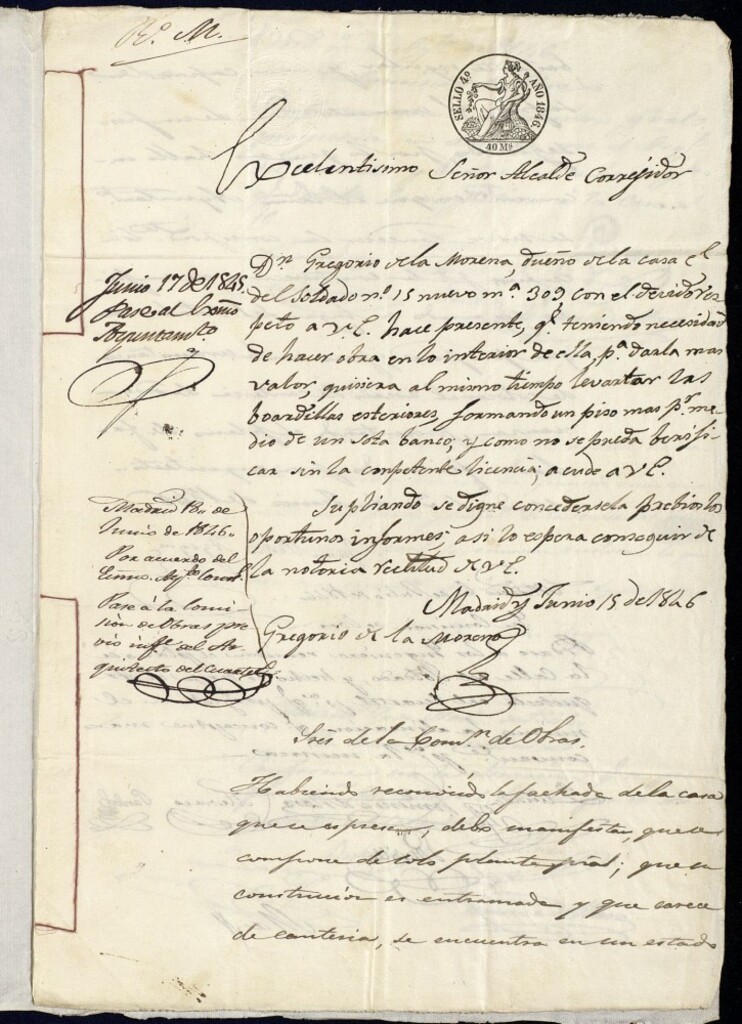 Rº. M.
SELLO 4º AÑO 1846.
40 Ms
Excelentisimo Señor Alcalde Corregidor
Dn. Gregorio de la Morena, dueño de la casa C.
del Soldado nº. 15 nuevo mª. 309, con el devido res
peto a V.E. hace presente, qe. teniendo necesidad
de hacer obra en lo interior de ella, pª. darla mas
valor, quisiera al mismo tiempo levantar las
boardillas esteriores, formando un piso mas pr. me-
dio de un sota banco; y como no se pueda berifi-
car sin la competente licencia; acude a V.E.
Supliando se digne concedersela prebios los
oportunos informes; asi lo espera conseguir de
la notoria rectitud de V.E.
Madrid y Junio 15 de 1846
Gregorio de la Morena
Junio 17 de 1845.
Pase al Exmo
Ayuntamto.
Madrid 18 de
Junio de 1846
Por acuerdo del
Exmo. Aytº. Const.
Pase á la Comi
sion de Obras pre
vio infe. del Ar
quitecto del Cuartel.
Sres de la Comon. de Obras.
Habiendo reconocido la fachada de la casa
que se espresa, debo manifestar, que se
compone de solo planta pral; que su
construccion es entramada y que carece
de canteria, se encuentra en un estado